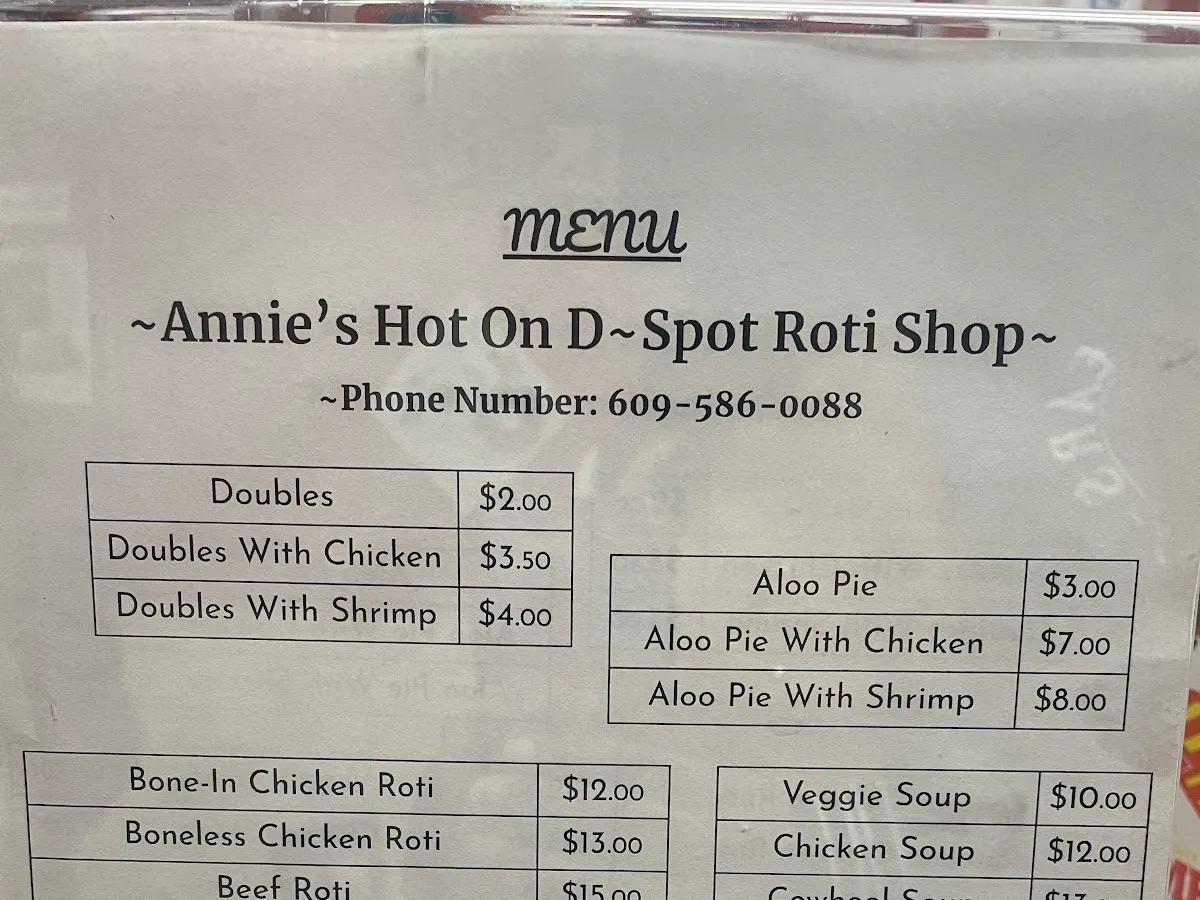 MENU
~Annie's Hot On D~Spot Roti Shop~
~Phone Number: 609-586-0088
Doubles $2.00
Doubles With Chicken $3.50
Doubles With Shrimp $4.00
Aloo Pie $3.00
Aloo Pie With Chicken $7.00
Aloo Pie With Shrimp $8.00
Bone-In Chicken Roti $12.00
Boneless Chicken Roti $13.00
Beef Roti $15.00
Veggie Soup $10.00
Chicken Soup $12.00
Cowheel Soup